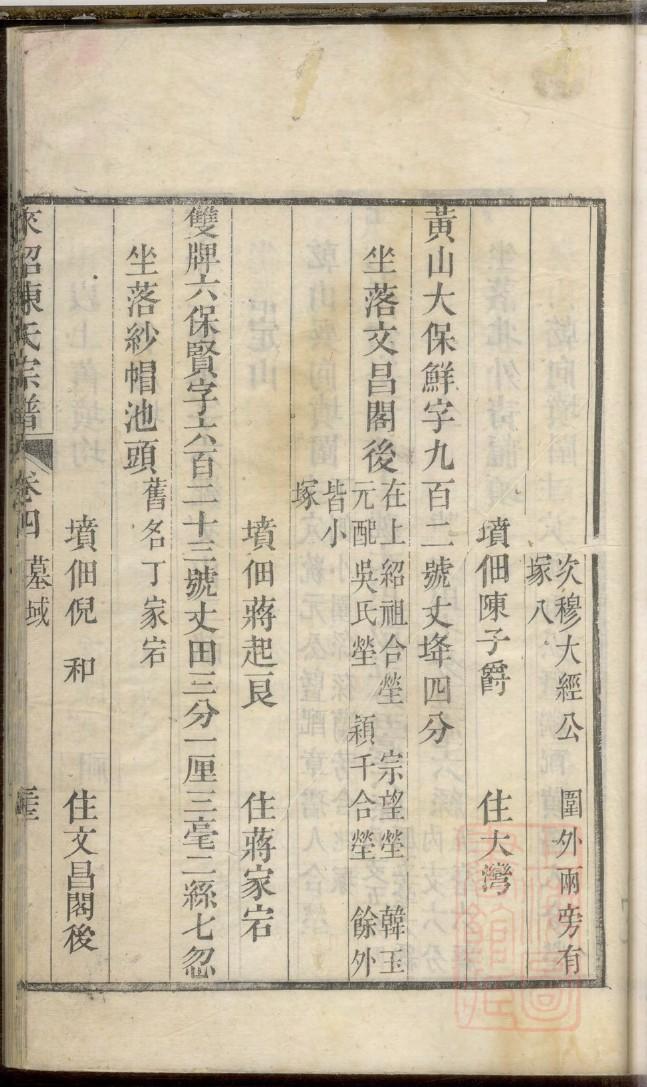 次穆大經公　圍外兩旁有
塚八
墳佃陳子爵　住大灣
黃山大保鮮字九百二號丈埄四分
坐落文昌閣後
在上紹祖合塋　宗望塋　韓玉
元配吳氏塋　穎千合塋　餘外
皆小
塚
墳佃蔣起良　住蔣家宕
雙牌六保賢字六百二十三號丈田三分一厘三毫二絲七忽
坐落紗帽池頭
舊名丁家宕
墳佃倪和　住文昌閣後
陳氏宗譜　卷四　墓域